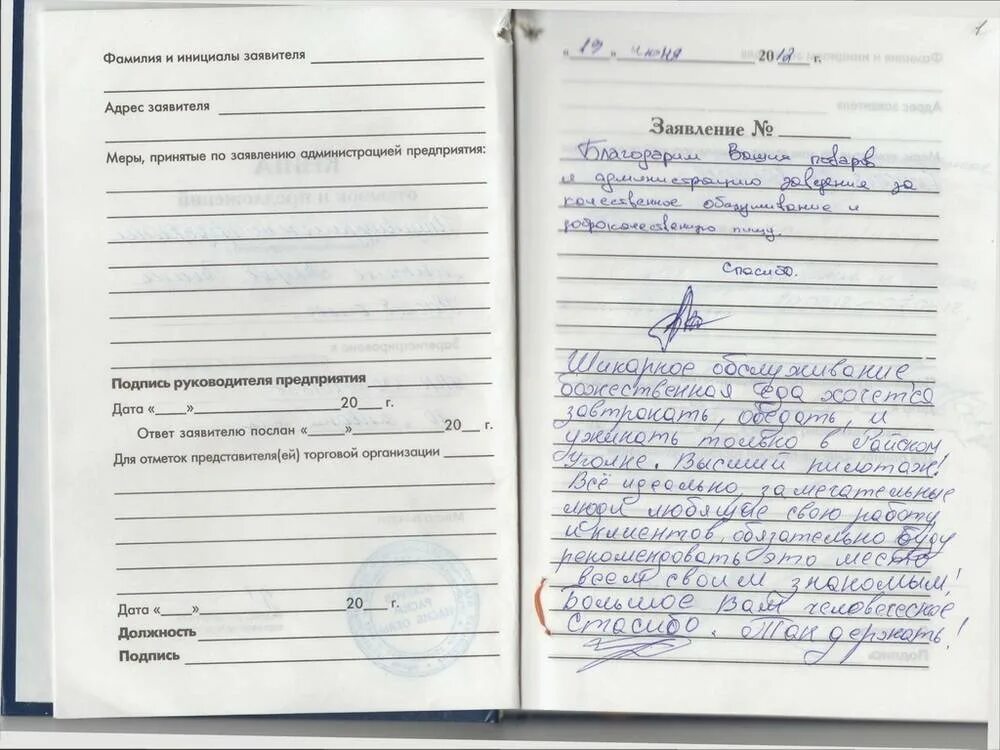 Фамилия и инициалы заявителя
Адрес заявителя
Меры, принятые по заявлению администрацией предприятия:
Подпись руководителя предприятия
Дата «____» 20__ г.
Ответ заявителю послан «____» 20__ г.
Для отметок представителя(ей) торговой организации
Дата «____» 20__ г.
Должность
Подпись
1
«19» июня 2012 г.
Заявление №
Благодарим Ваших поваров
и администрацию заведения за
качественное обслуживание и
доброкачественную пищу.
Спасибо.
Шикарное обслуживание,
божественная еда хочется
завтракать, обедать, и
ужинать только в Райском
уголке. Высший пилотаж!
Всё идеально, замечательные
люди любящие свою работу
и клиентов, обязательно буду
рекомендовать это место
всем своим знакомым!
Большое Вам человеческое
Спасибо. Так держать!